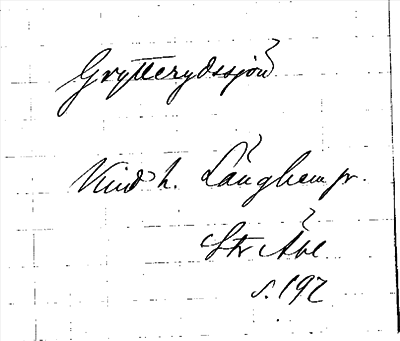 Grytterydssjön
Kind h. Länghem pr.
Str Åbe
s. 192